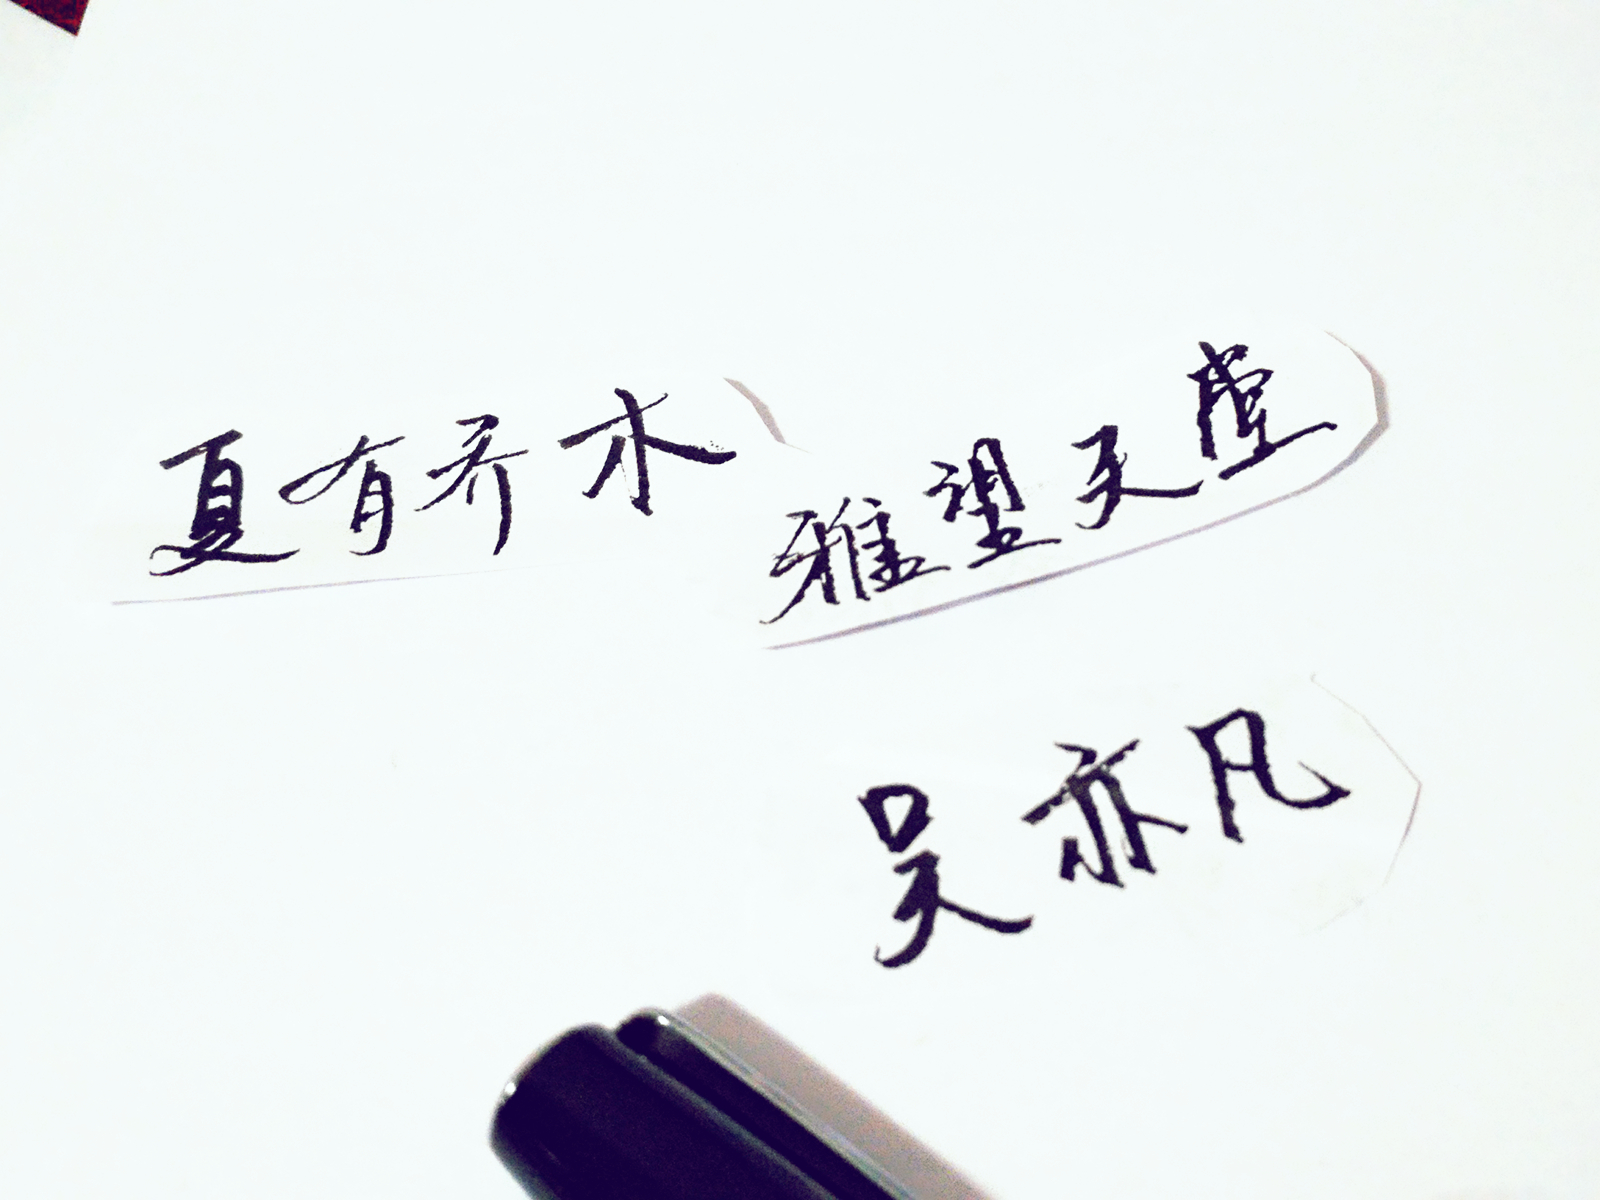 夏有乔木
雅望天堂
吴亦凡